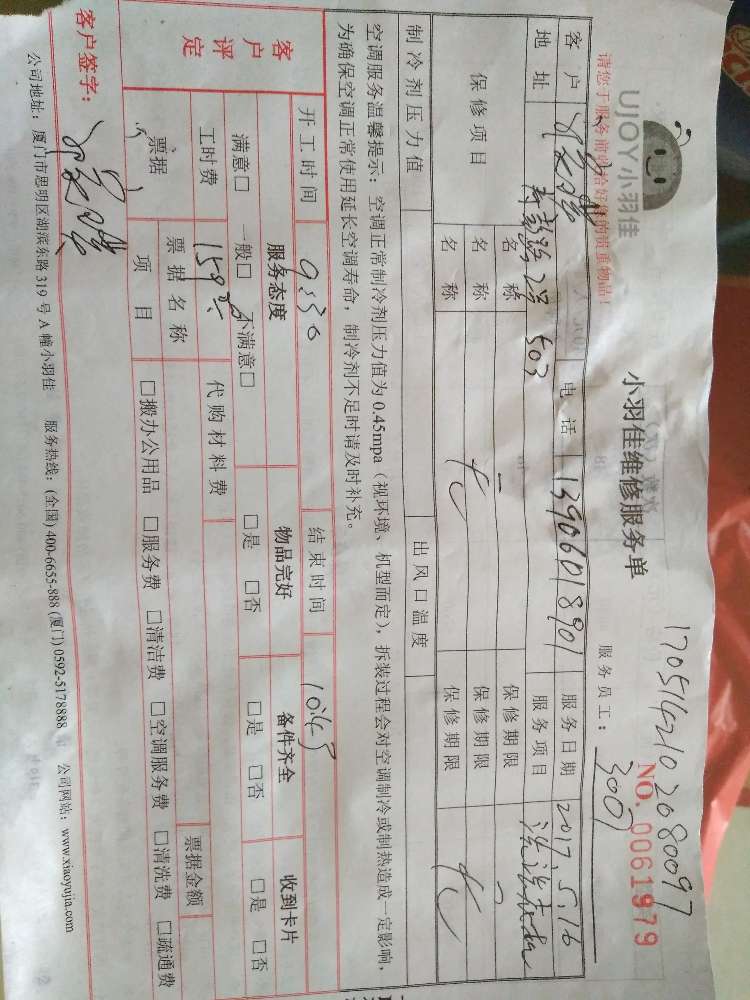 1705142102080097
UJOY小羽佳
小羽佳维修服务单
NO. 0061979
请您于服务前 恰好您的贵重物品!
服务员工: 300
客户 电话 13906018901 服务日期 2017.5.16
地址 503 服务项目
保修项目 名称 无 保修期限 无
名称 保修期限
名称 保修期限
制冷剂压力值 出风口温度
空调服务温馨提示:空调正常制冷剂压力值为0.45mpa(视环境、机型而定),拆装过程会对空调制冷或制热造成一定影响,
为确保空调正常使用延长空调寿命,制冷剂不足时请及时补充。
开工时间 9:30 结束时间 10:45
客户评定 服务态度 物品完好 备件齐全 收到卡片
满意□ 一般□ 不满意□ □是 □否 □是 □否 □是 □否
工时费 158元 代购材料费
票据 票据名称 票据金额
项目 □搬办公用品 □服务费 □清洁费 □空调服务费 □清洗费 □疏通费
客户签字:
公司地址:厦门市思明区湖滨东路319号A幢小羽佳 服务热线:(全国)400-6655-888 (厦门)0592-5178888 公司网站:www.xiaoyujia.com